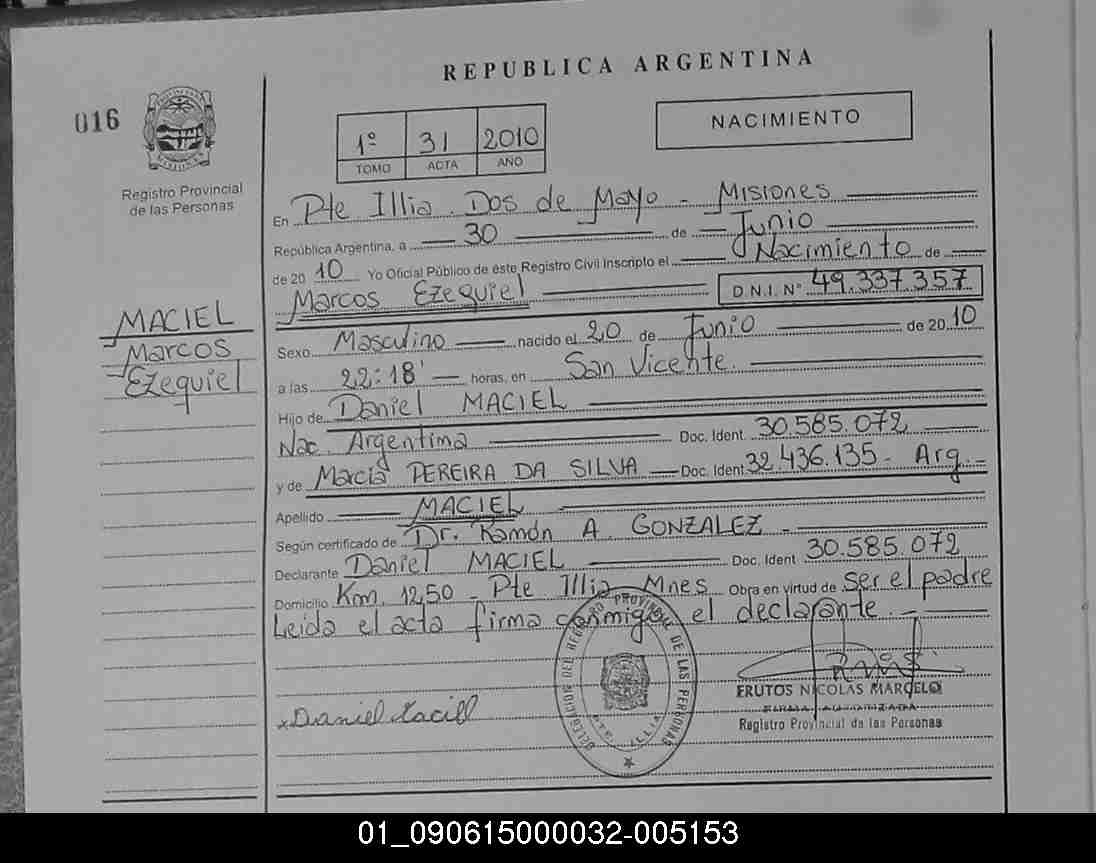 REPUBLICA ARGENTINA
016
1º 31 2010
TOMO ACTA AÑO
NACIMIENTO
Registro Provincial
de las Personas
En Pte Illia. Dos de Mayo - Misiones
República Argentina, a 30 de Junio
de 2010 Yo Oficial Público de éste Registro Civil Inscripto el Nacimiento de
Marcos Ezequiel D.N.I. Nº 49.337.357
MACIEL
Marcos
Ezequiel
Sexo Masculino nacido el 20 de Junio de 2010
a las 22:18' horas, en San Vicente.
Hijo de Daniel MACIEL
Nac. Argentina Doc. Ident. 30.585.072
y de Marcia PEREIRA DA SILVA Doc. Ident. 32.436.135- Arg.-
Apellido MACIEL
Según certificado de Dr. Ramón A. GONZALEZ -
Declarante Daniel MACIEL Doc. Ident 30.585.072
Domicilio Km. 1250 - Pte Illia - Mnes Obra en virtud de ser el padre
Leida el acta firma conmigo el declarante.-
DELEGACION DEL REGISTRO PROVINCIAL DE LAS PERSONAS
PTE. ILLIA
x Daniel Maciel
FRUTOS NICOLAS MARCELO
FIRMA AUTORIZADA
Registro Provincial de las Personas
01_090615000032-005153